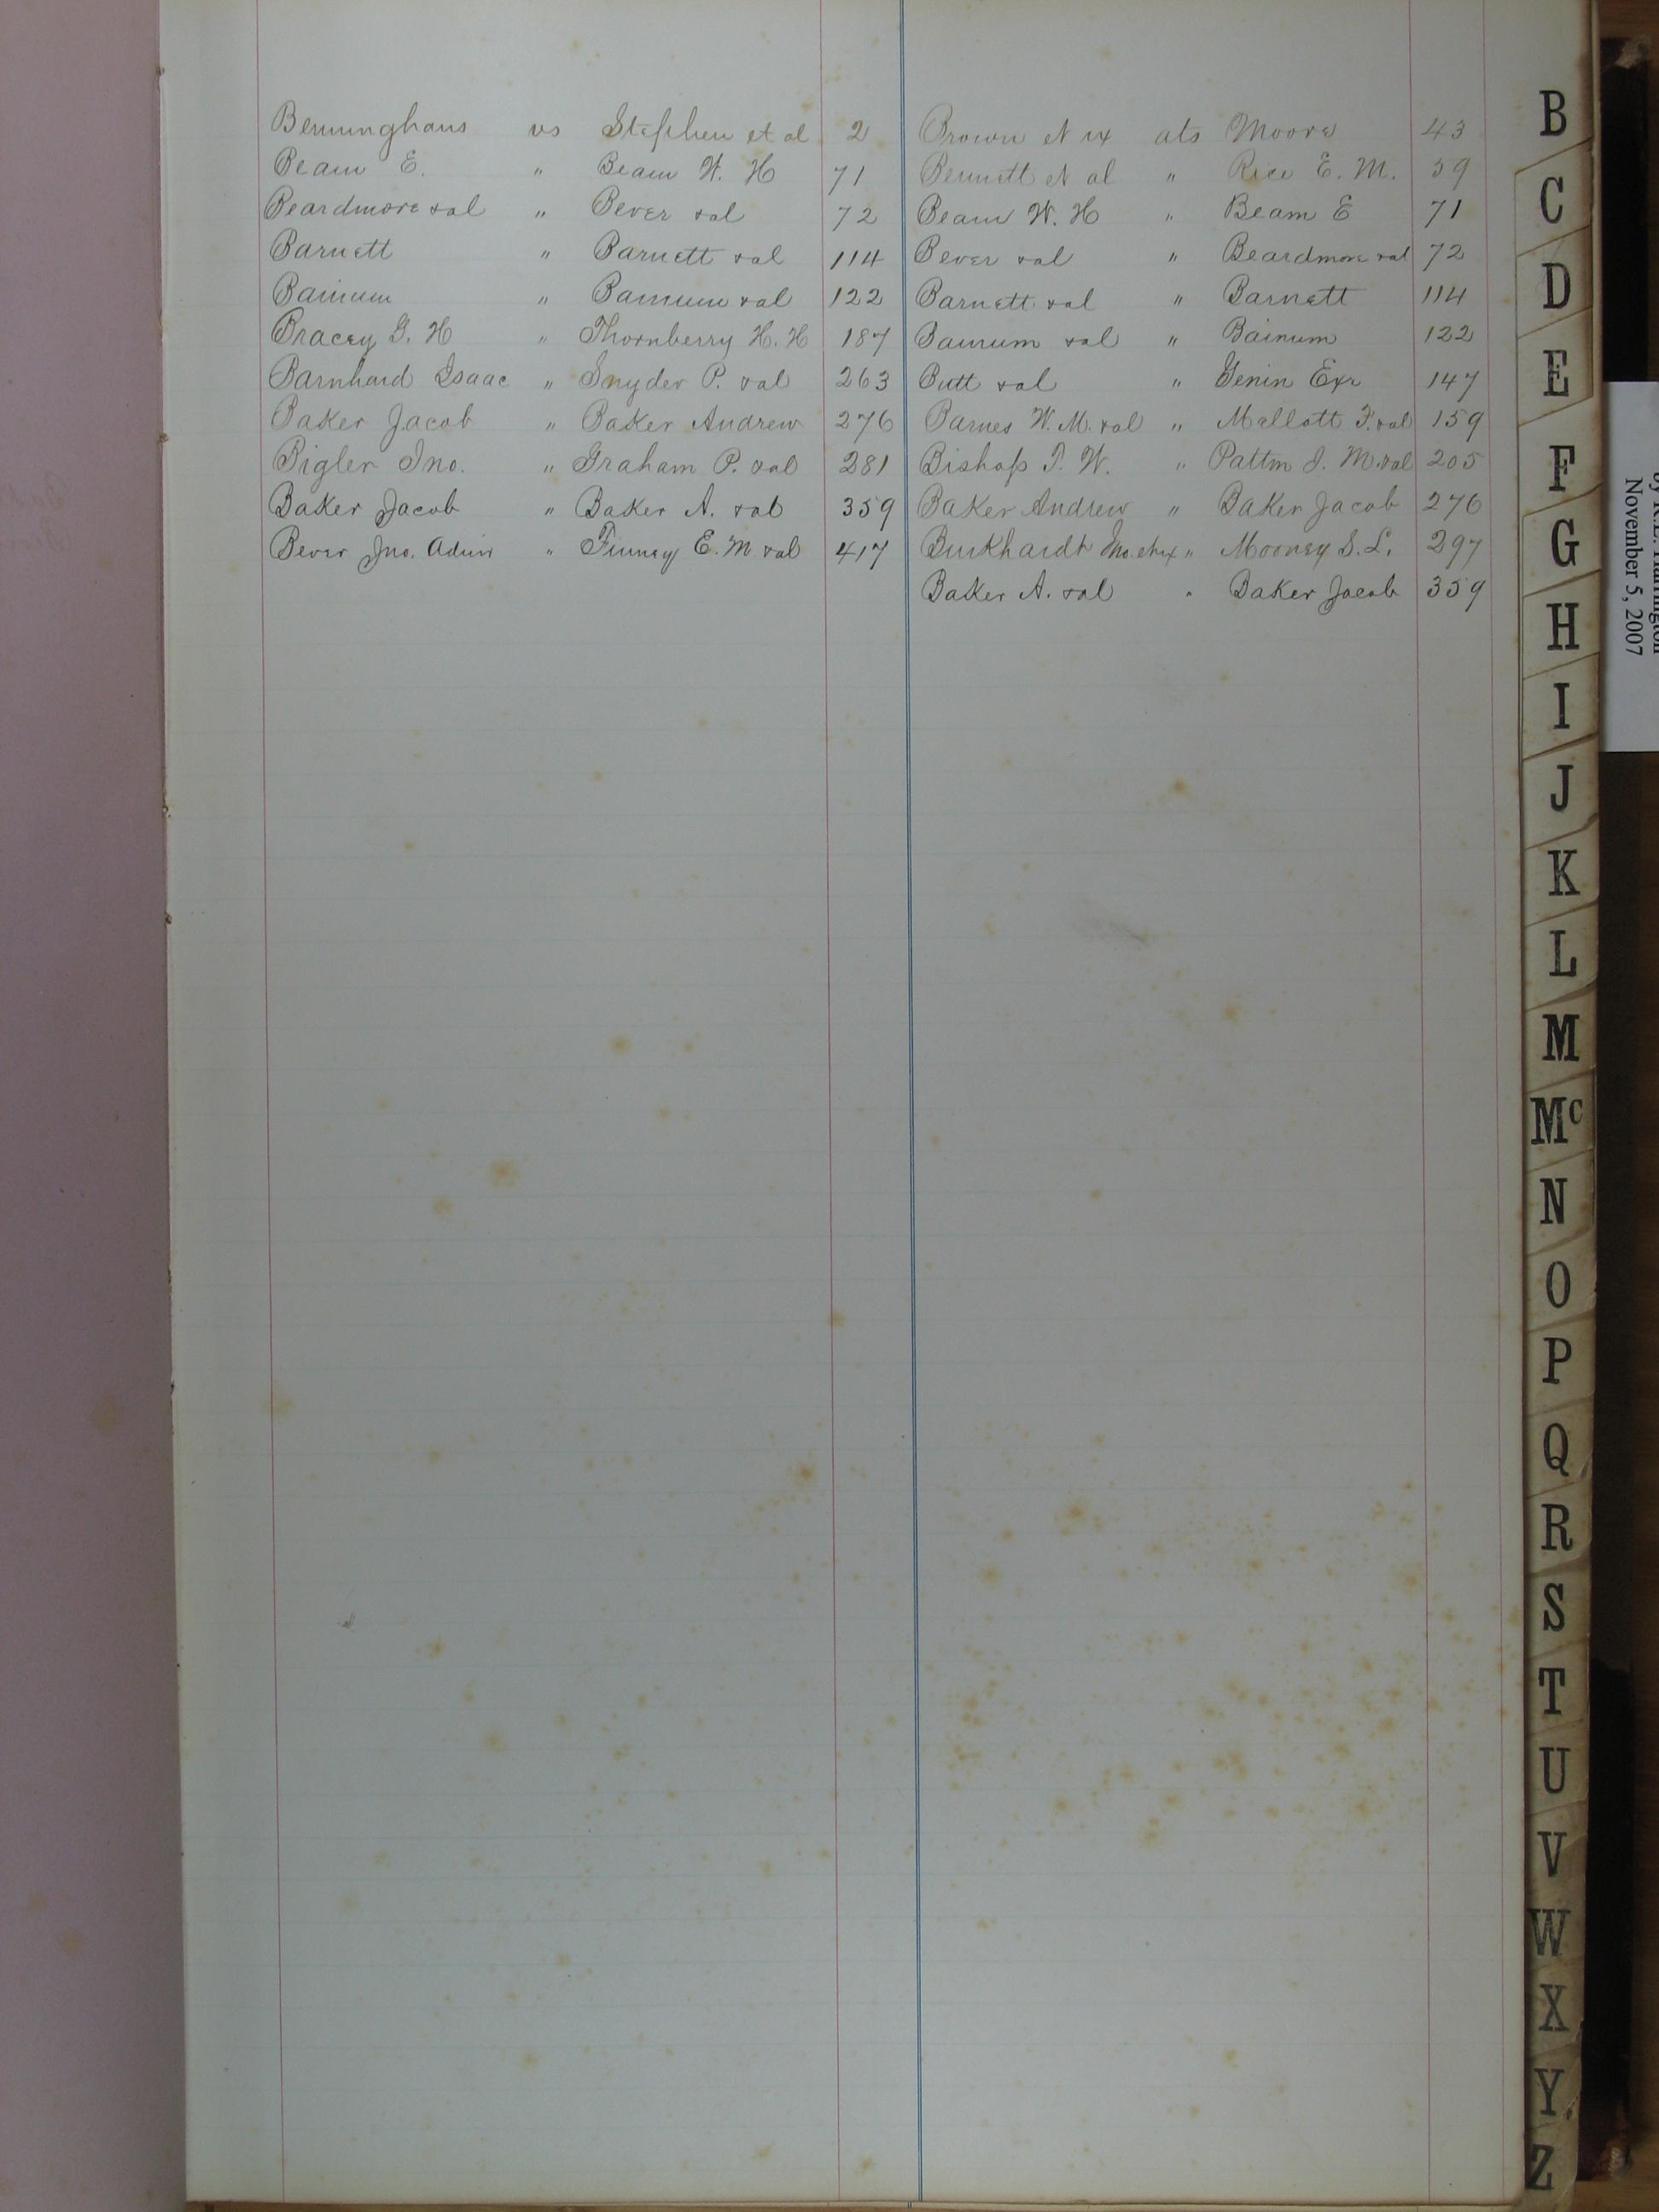 Benninghaus vs Stephen et al 2
Beam E. " Beam W. H 71
Beardmore &al " Bever &al 72
Barnett " Barnett &al 114
Bainum " Bainum &al 122
Bracey G. H " Thornberry H. H 187
Barnhard Isaac " Snyder P. &al 263
Baker Jacob " Baker Andrew 276
Bigler Jno. " Graham P. &al 281
Baker Jacob " Baker A. &al 359
Bever Jno. Admr " Finney E. M &al 417
Brown et ux ats Moore 43
Bennett et al " Rice E. M. 59
Beam W. H " Beam E 71
Bever &al " Beardmore &al 72
Barnett &al " Barnett 114
Bainum &al " Bainum 122
Butt &al " Genin Exr 147
Barnes W. M. &al " Mellott F. &al 159
Bishop T. W. " Patton J. M. &al 205
Baker Andrew " Baker Jacob 276
Burkhardt Jno. etux " Mooney S. L. 297
Baker A. &al " Baker Jacob 359
B
C
D
E
F
G
H
I
J
K
L
M
Mc
N
O
P
Q
R
S
T
U
V
W
X
Y
Z
November 5, 2007